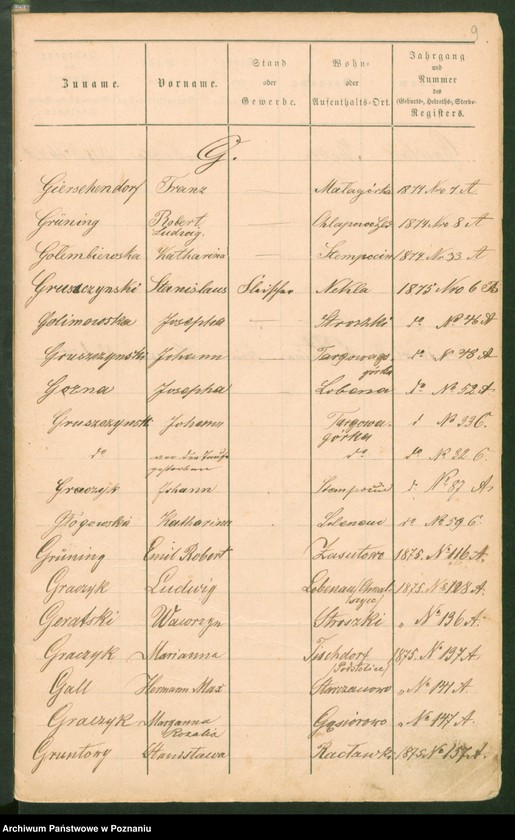 9
Zuname. Vorname. Stand oder Gewerbe. Wohn- oder Aufenthalts-Ort. Jahrgang und Nummer des (Geburts-, Heiraths-, Sterbe- Registers.
G.
Giersehendorf Franz — Malagórka 1874 Nro 7 A
Grüning Robert Ludwig. — 1874 Nro 8 A
Golembiewska Katharina — Stempocin 1874 Nr. 33 A
Gruszczynski Stanislaus Nekla 1875 Nro 6
Golimowska Josepha — Stroshki do No 46 A
Gruszczynski Johann — Targowagórka do No 48 A
Gozna Josepha Lobena do No 52 A
Gruszczynski Johann Targowagórka d No 33 C.
do vor der Taufe gestorben do do No 32 C.
Graczyk Johann d No 87 A.
Głogowski Katharina do No 59 C.
Grüning Emil Robert Zasutowo 1875. No 116 A.
Graczyk Ludwig 1875. No 128 A.
Geratski Wawrzyn Stroszki " No 136 A.
Graczyk Marianna Tischdorf (Podstolice) 1875. No 137 A.
Gall Hermann Max Starczanowo " No 141 A.
Graczyk Maryanna Rozalia Gąsiorowo " No 147 A.
Gruntowy Stanisława Racławki 1875. No 157 A.
Archiwum Państwowe w Poznaniu